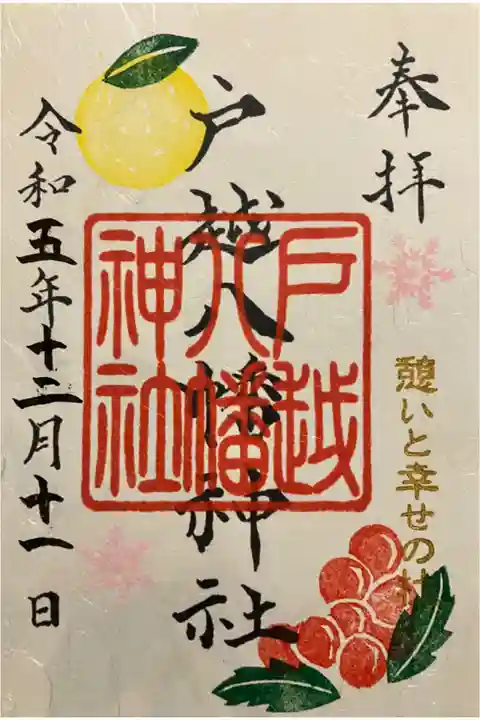 奉拝
憩いと幸せの杜
戸越八幡神社
戸越
八幡
神社
令和五年十二月十一日